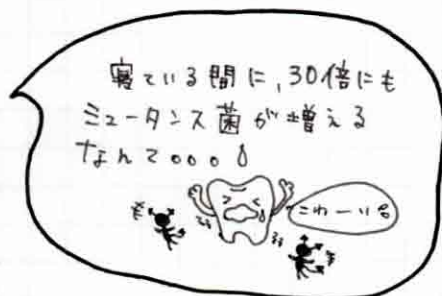 寝ている間に、30倍にも
ミュータンス菌が増える
なんて。。。
こわーい